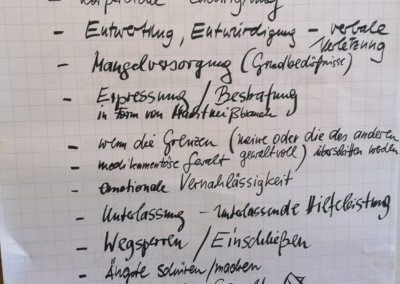 - körperliche
- Entwertung, Entwürdigung - verbale
Verletzung
- Mangelversorgung (Grundbedürfnisse)
- Erpressung / Bestrafung
in Form von Macht missbrauch
- wenn die Grenzen (meine oder die des anderen
gewaltvoll) überschritten werden
- medikamentöse Gewalt
- emotionale Vernahlässigkeit
- Unterlassung - unterlassende Hilfeleistung
- Wegsperren / Einschließen
- Ängste schüren/machen